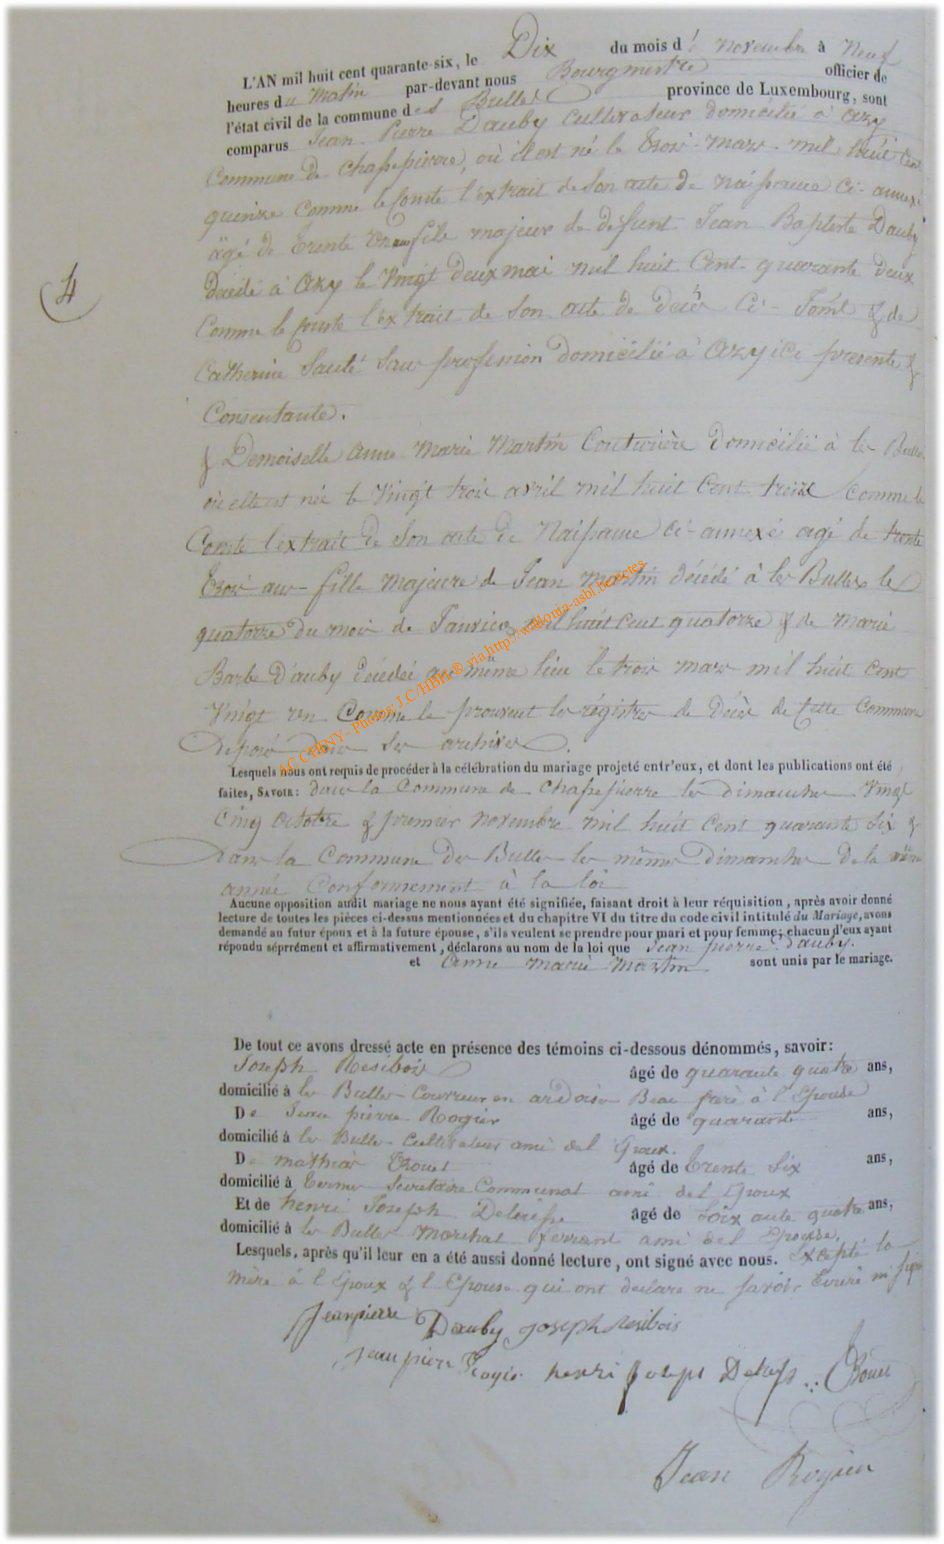 L'AN mil huit cent quarante-six, le Dix du mois d e novembre à Neuf
heures du Matin par-devant nous Bourgmestre officier de
l'état civil de la commune des Bulles province de Luxembourg, sont
comparus Jean Pierre Dauby Cultivateur domicilié à Azy
Commune de Chassepierre, où il est né le trois mars mil huit Cent
quinze Comme le Conste l'extrait de Son acte de Naissance Ci-annexé
âgé de trente un ans fils majeur de defunt Jean Baptiste Dauby
Décédé à Azy le Vingt deux mai mil huit Cent quarante deux
Comme le Conste l'extrait de Son acte de Décès Ci-Joint & de
Catherine Sauté Sans profession Domicilié à Azy ici presente &
Consentante.
& Demoiselle Anne Marie Martin Couturière domicilié à les Bulles
où elle est née le Vingt trois avril mil huit Cent treize Comme le
Conste l'extrait de Son acte de Naissance Ci-annexé agé de trente
trois ans fille majeure de Jean Martin décédé à les Bulles le
quatorze du mois de Janvier mil huit Cent quatorze & de Marie
Barbe Dauby décédée au même lieu le trois mars mil huit Cent
Vingt un Comme le prouvent les régistres de Décès de Cette Commune
déposé dans Ses archives.
4
AC CHINY - Photos J.C/HBH © via http://wallonia-asbl.be/actes
Lesquels nous ont requis de procéder à la célébration du mariage projeté entr'eux, et dont les publications ont été
faites, SAVOIR: dans la Commune de Chassepierre les dimanches Vingt
Cinq Octobre & premier Novembre mil huit Cent quarante Six &
Dans la Commune des Bulles les mêmes Dimanches de la même
année Conformement à la loi
Aucune opposition audit mariage ne nous ayant été signifiée, faisant droit à leur réquisition, après avoir donné
lecture de toutes les pièces ci-dessus mentionnées et du chapitre VI du titre du code civil intitulé du Mariage, avons
demandé au futur époux et à la future épouse, s'ils veulent se prendre pour mari et pour femme; chacun d'eux ayant
répondu séprrément et affirmativement, déclarons au nom de la loi que Jean pierre Dauby.
et Anne Marie Martin sont unis par le mariage.
De tout ce avons dressé acte en présence des témoins ci-dessous dénommés, savoir:
Joseph Resibois âgé de quarante quatre ans,
domicilié à les Bulles Couvreur en ardoise Beau frere à l'Epouse
De Jean pierre Rogier âgé de quarante ans,
domicilié à les Bulles Cultivateur ami del Epoux.
De Mathias âgé de trente Six ans,
domicilié à Termes Secretaire Communal ami del Epoux
Et de henri Joseph âgé de Soixante quatre ans,
domicilié à les Bulles Marchal ferrant ami del Epouse.
Lesquels, après qu'il leur en a été aussi donné lecture, ont signé avec nous. Excepté la
mère à l Epoux & l Epouse qui ont declaré ne Savoir Ecrire ni Signé
Jeanpierre Dauby Joseph Resibois
Jean pierre Rogier henri Joseph
Jean Rogier